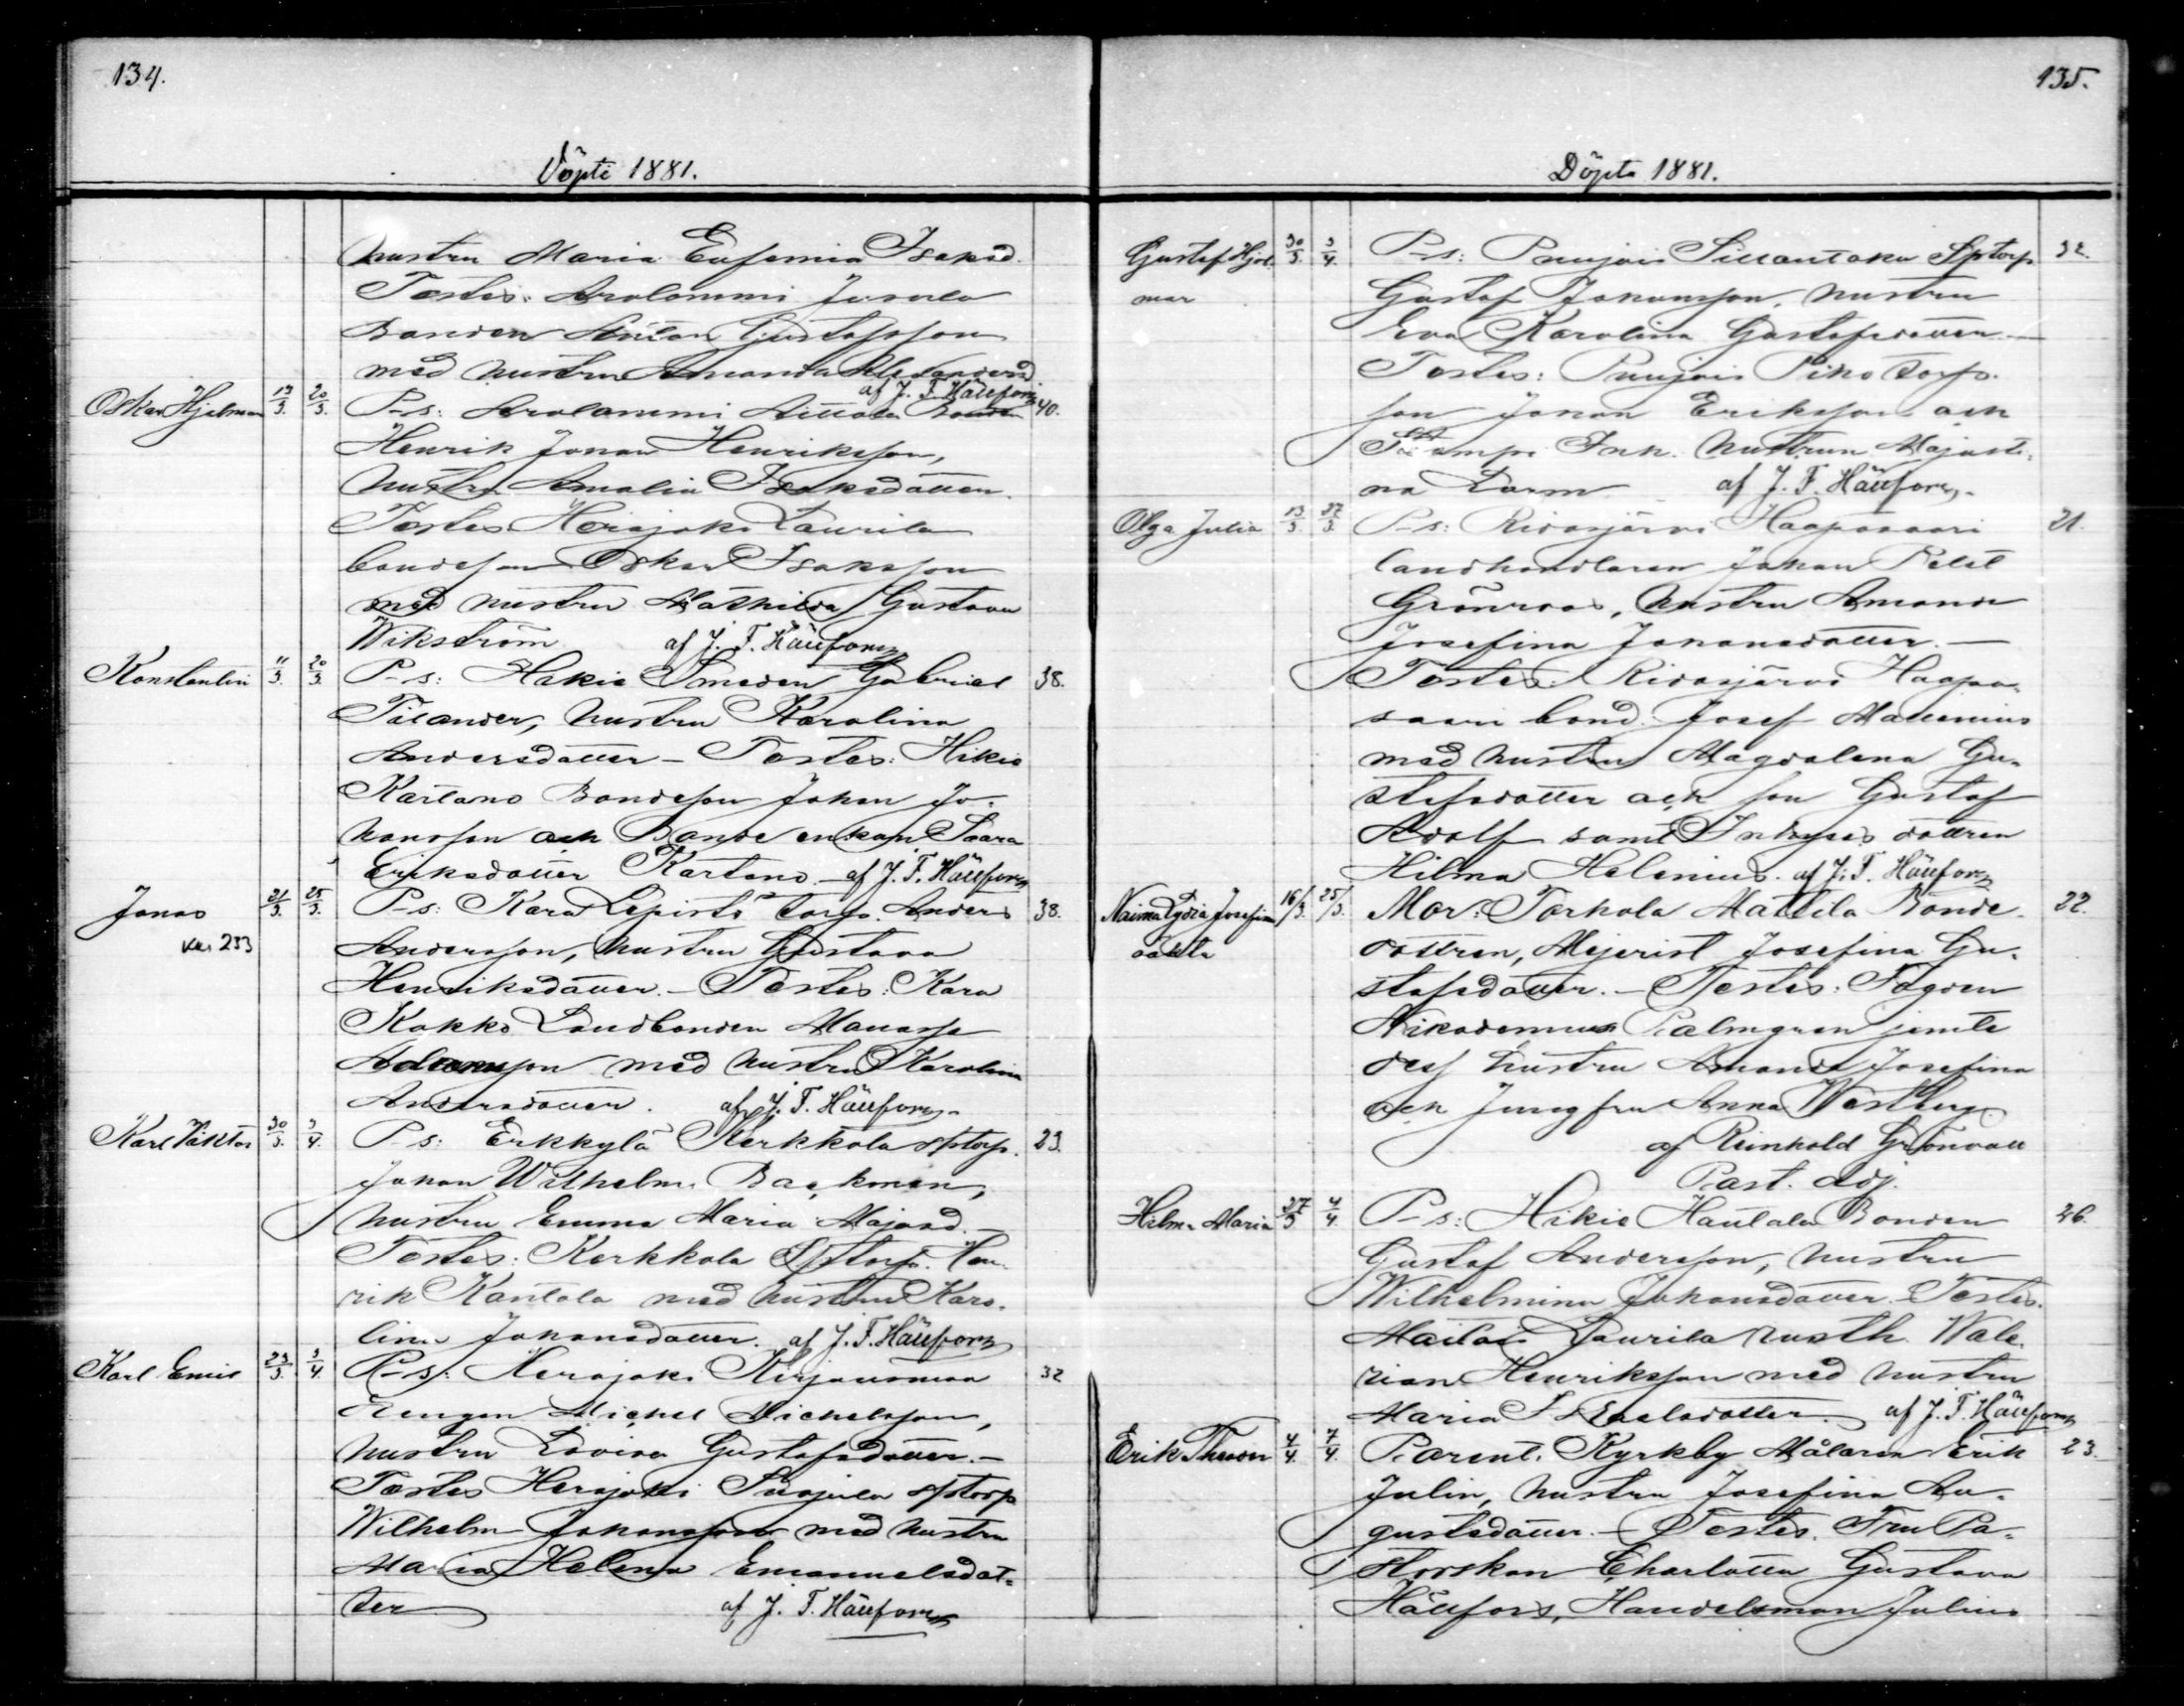 134.
Döpte 1881.
hustru Maria Eufemia Isaksd.
Testes: Arolammi Jusula
Bonden Anton Gustafsson
med hustru Amanda Alexandersd
af J. F. Hällfors
Oskar Hjalmar 17/3. 20/3. P-s: Arolammi Aittola Bonden 40.
Henrik Johan Henriksson,
hustru Amalia Isaksdotter.
Testes Herajoki Laurila
bondeson Oskar Isaksson
med hustru Mathilda Gustava
Wikström af J. F. Hällfors
Konstantin 11/3. 20/3. P-s: Hikiä Smeden Gabriel 38.
Tilander, hustru Karolina
Andersdotter - Testes: Hikiä
Kartano Bondeson Johan Jo-
hansson och Bonde enkan Saara
Eriksdotter Kartano. - af J. F. Hällfors
Jonas 21/3. 25/3. P-s: Kara Lepistö torp. Anders 38.
233
Andersson, hustru Gustava
Henriksdotter. - Testes: Kara
Kokko Landbonden Manasse
Adamsson med hustru Karolina
Andersdotter. af J. F. Hällfors
Karl Viktor 30/3. 3/4. P-s: Erkkylä Kerkkola sptorp. 23.
Johan Wilhelm Backman,
hustru Emma Maria Majasd. -
Testes: Kerkkola Sptorp. Hen-
rik Kantola med hustru Karo-
lina Johansdotter. af J. F. Hällfors
Karl Emil 23/3. 3/4. P-s: Herajoki Kirjausmaa 32
Drengen Michel Michelsson,
hustru Lovisa Gustafsdotter. -
Testes Herajoki Suojula sptorp
Wilhelm Johansson med hustru
Maria Helena Emanuelsdot-
ter af J. F. Hällfors
135.
Döpta 1881.
Gustaf Hjal- 30/3. 3/4. P-s: Puujois Sillantaka Sptorp 32.
mar Gustaf Johansson, hustru
Eva Karolina Gustafsdotter. -
Testes: Puujois Piko torp-
son Johan Eriksson och
Inh. hustrun Majasti-
na Lorm af J. F. Hällfors.
Olga Julia 13/3. 27/3. P-s: Ridasjärvi Haapasaari 21.
landhandlaren Johan
Grönroos, hustru Amanda
Josefina Johansdotter. -
Testes: Ridasjärvi Haapa-
saari bond. Josef Mallenius
med hustru Magdalena Gu-
stafsdotter och son Gustaf
Adolf samt Inhyses dottren
Hilma Helenius. af J. F. Hällfors
Naima Lydia Josefina 16/3. 25/3. Mor: Torhola Mattila Bonde- 22.
oäkta dottren, Mejerist Josefina Gu-
stafsdotter. - Testes: Fogden
Nikodemus Palmgren jemte
dess hustru Amanda Josefina
och Jungfru Anna Westberg.
af Reinhold Grönvall
Past. Adj.
Hilma Maria 27/3 4/4. P-s: Hikiä Hautala Bonden 26.
Gustaf Andersson, hustru
Wilhelmina Johansdotter. Testes.
Maitois Laurila rusth. Wale-
rian Henriksson med hustru
Maria I Isaksdotter. af J. F. Hällfors
Erik Theodor 4/4. 7/4. Parent. Kyrkby Målaren Erik 23.
Julin, hustru Josefina Au-
gustsdotter. - Testes. Fru Pa-
storskan Charlotta Gustava
Hällfors, Handelsman Julius